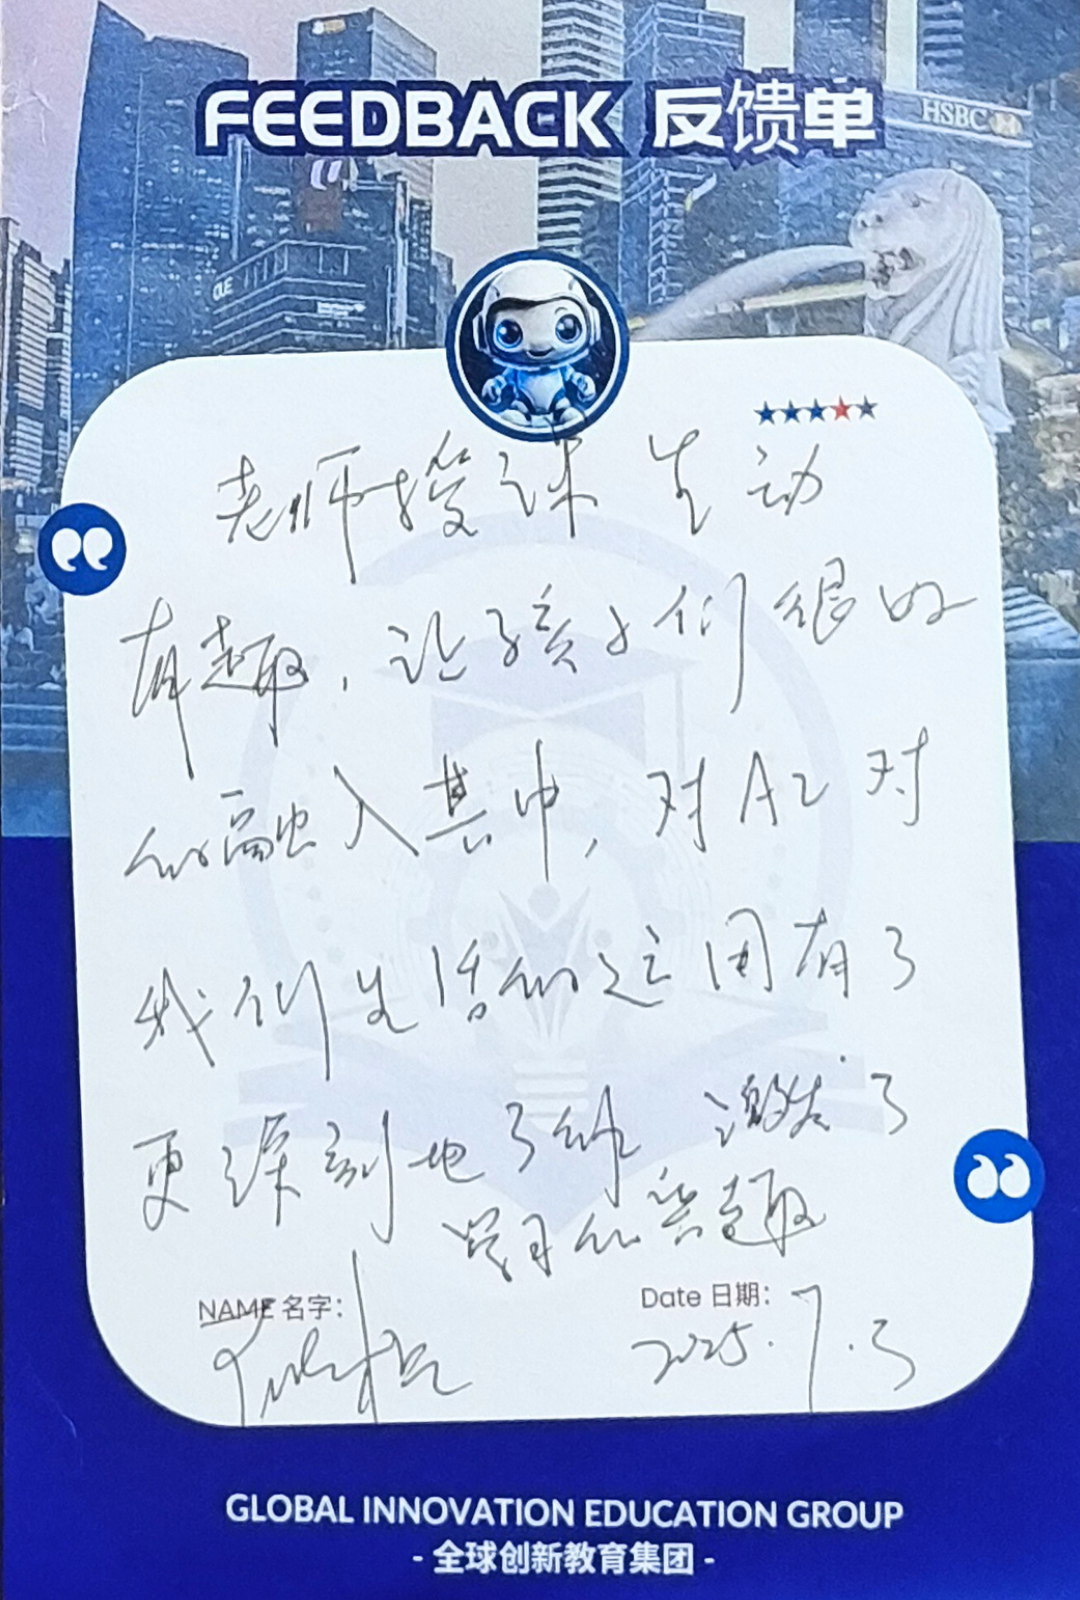 FEEDBACK 反馈单
HSBC
OUE
老师授课生动
有趣，让孩子们很好
的融入其中，对AI对
我们生活的运用有了
更深刻地了解 激发了
学习的兴趣
NAME 名字：
Date 日期：
2025.7.3
GLOBAL INNOVATION EDUCATION GROUP
- 全球创新教育集团 -